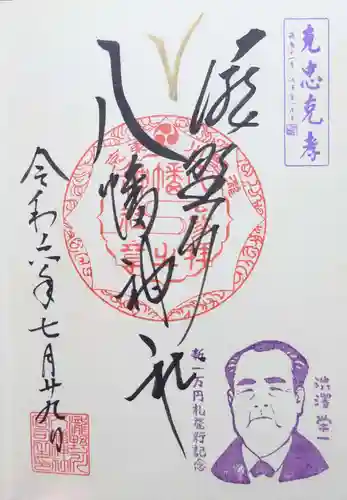 克忠克孝
瀧野川
八幡神社
令和六年七月廿九日
新一万円札発行記念
渋澤栄一